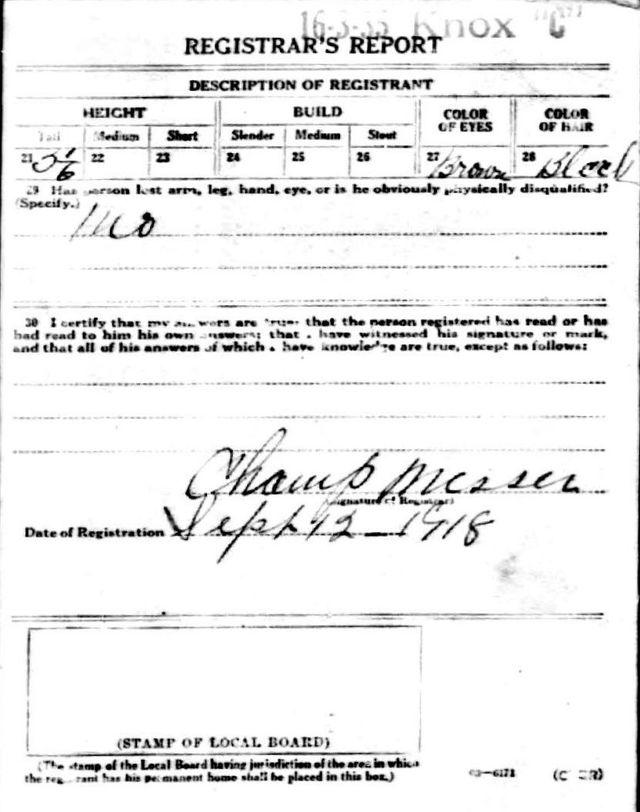 16-3-35 Knox "C"
REGISTRAR'S REPORT
DESCRIPTION OF REGISTRANT
HEIGHT BUILD COLOR OF EYES COLOR OF HAIR
Tall Medium Short Slender Medium Stout
21 5 1/6 22 23 24 25 26 27 Brown 28 Black
29 Has person lost arm, leg, hand, eye, or is he obviously physically disqualified?
(Specify.)
no
30 I certify that my answers are true; that the person registered has read or has
had read to him his own answers; that I have witnessed his signature or mark,
and that all of his answers of which I have knowledge are true, except as follows:
Champ Messer
(Signature of Registrar)
Date of Registration Sept 12 - 1918
(STAMP OF LOCAL BOARD)
(The stamp of the Local Board having jurisdiction of the area in which
the registrant has his permanent home shall be placed in this box.)
03-6171 (OVER)